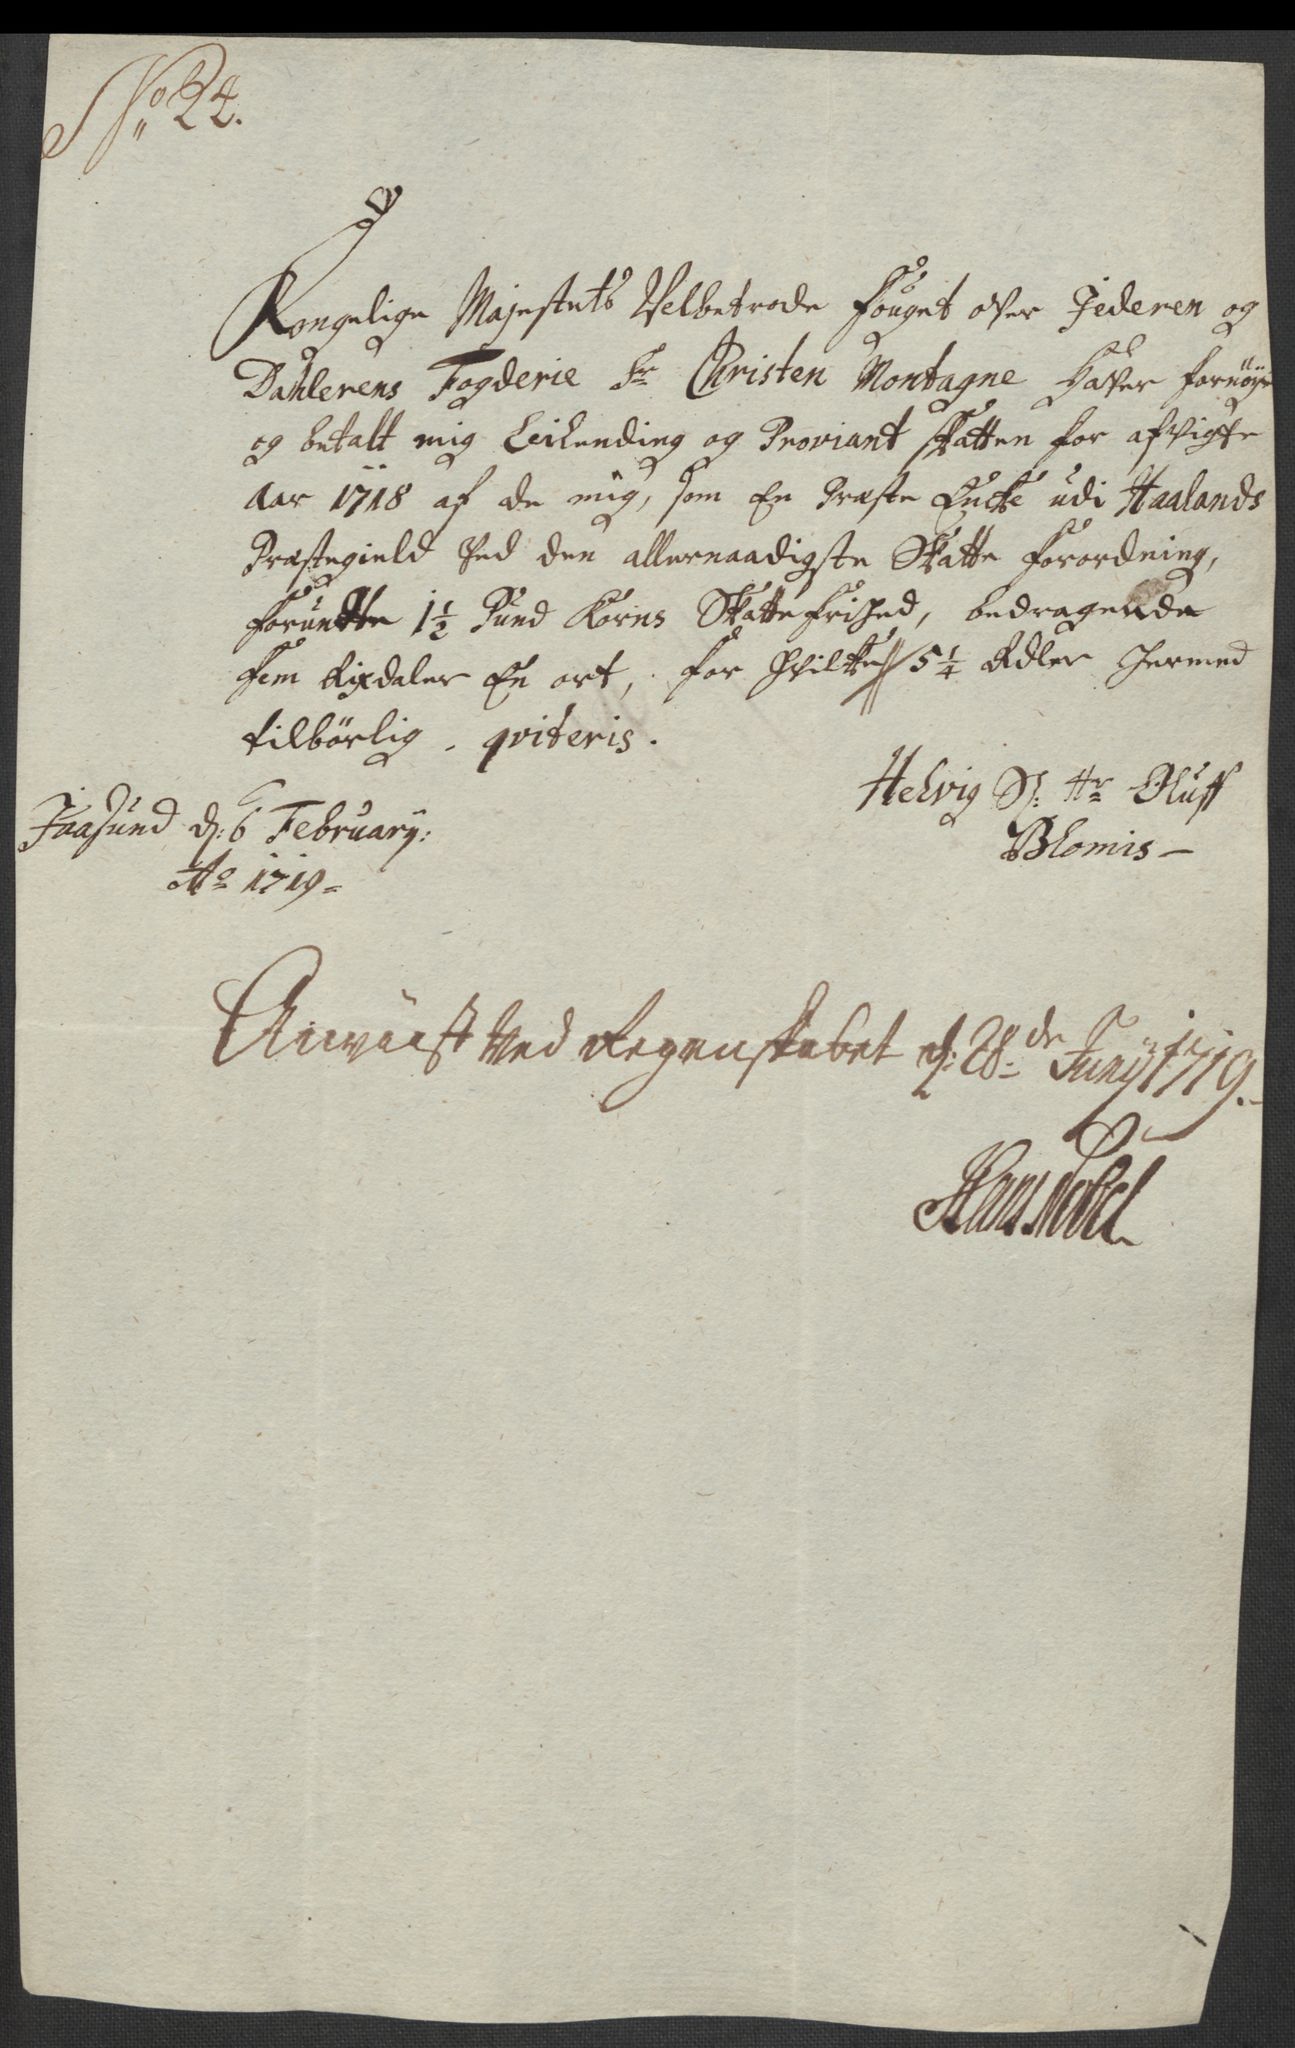 No 24.
Kongelige Majestets Velbetrode fouget over Jederen og
Dahlerens Fogderie Sr Christen Montagne haver fornöyet
og betalt mig Leilending og Proviant skatten for afvigte
Aar 1718 af de mig, som En Præste Encke udi Haalands
Præstegield ved den allernaadigste Skatte forordning,
forundte 1½ Pund Korns Skatte frihed, bedragende
fem Rixdaler En ort, for hvilke 5¼ Rdler hermed
tilbörlig qviteris.
Helvig Sl: Hr Oluff
Blomis
Jaasund d: 6 February:
Ao 1719
Anviist ved Regenskabet d: 28de Juny 1719.
Hans Nobel